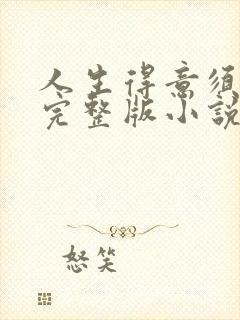 人生得意须
完整版小説
怒笑